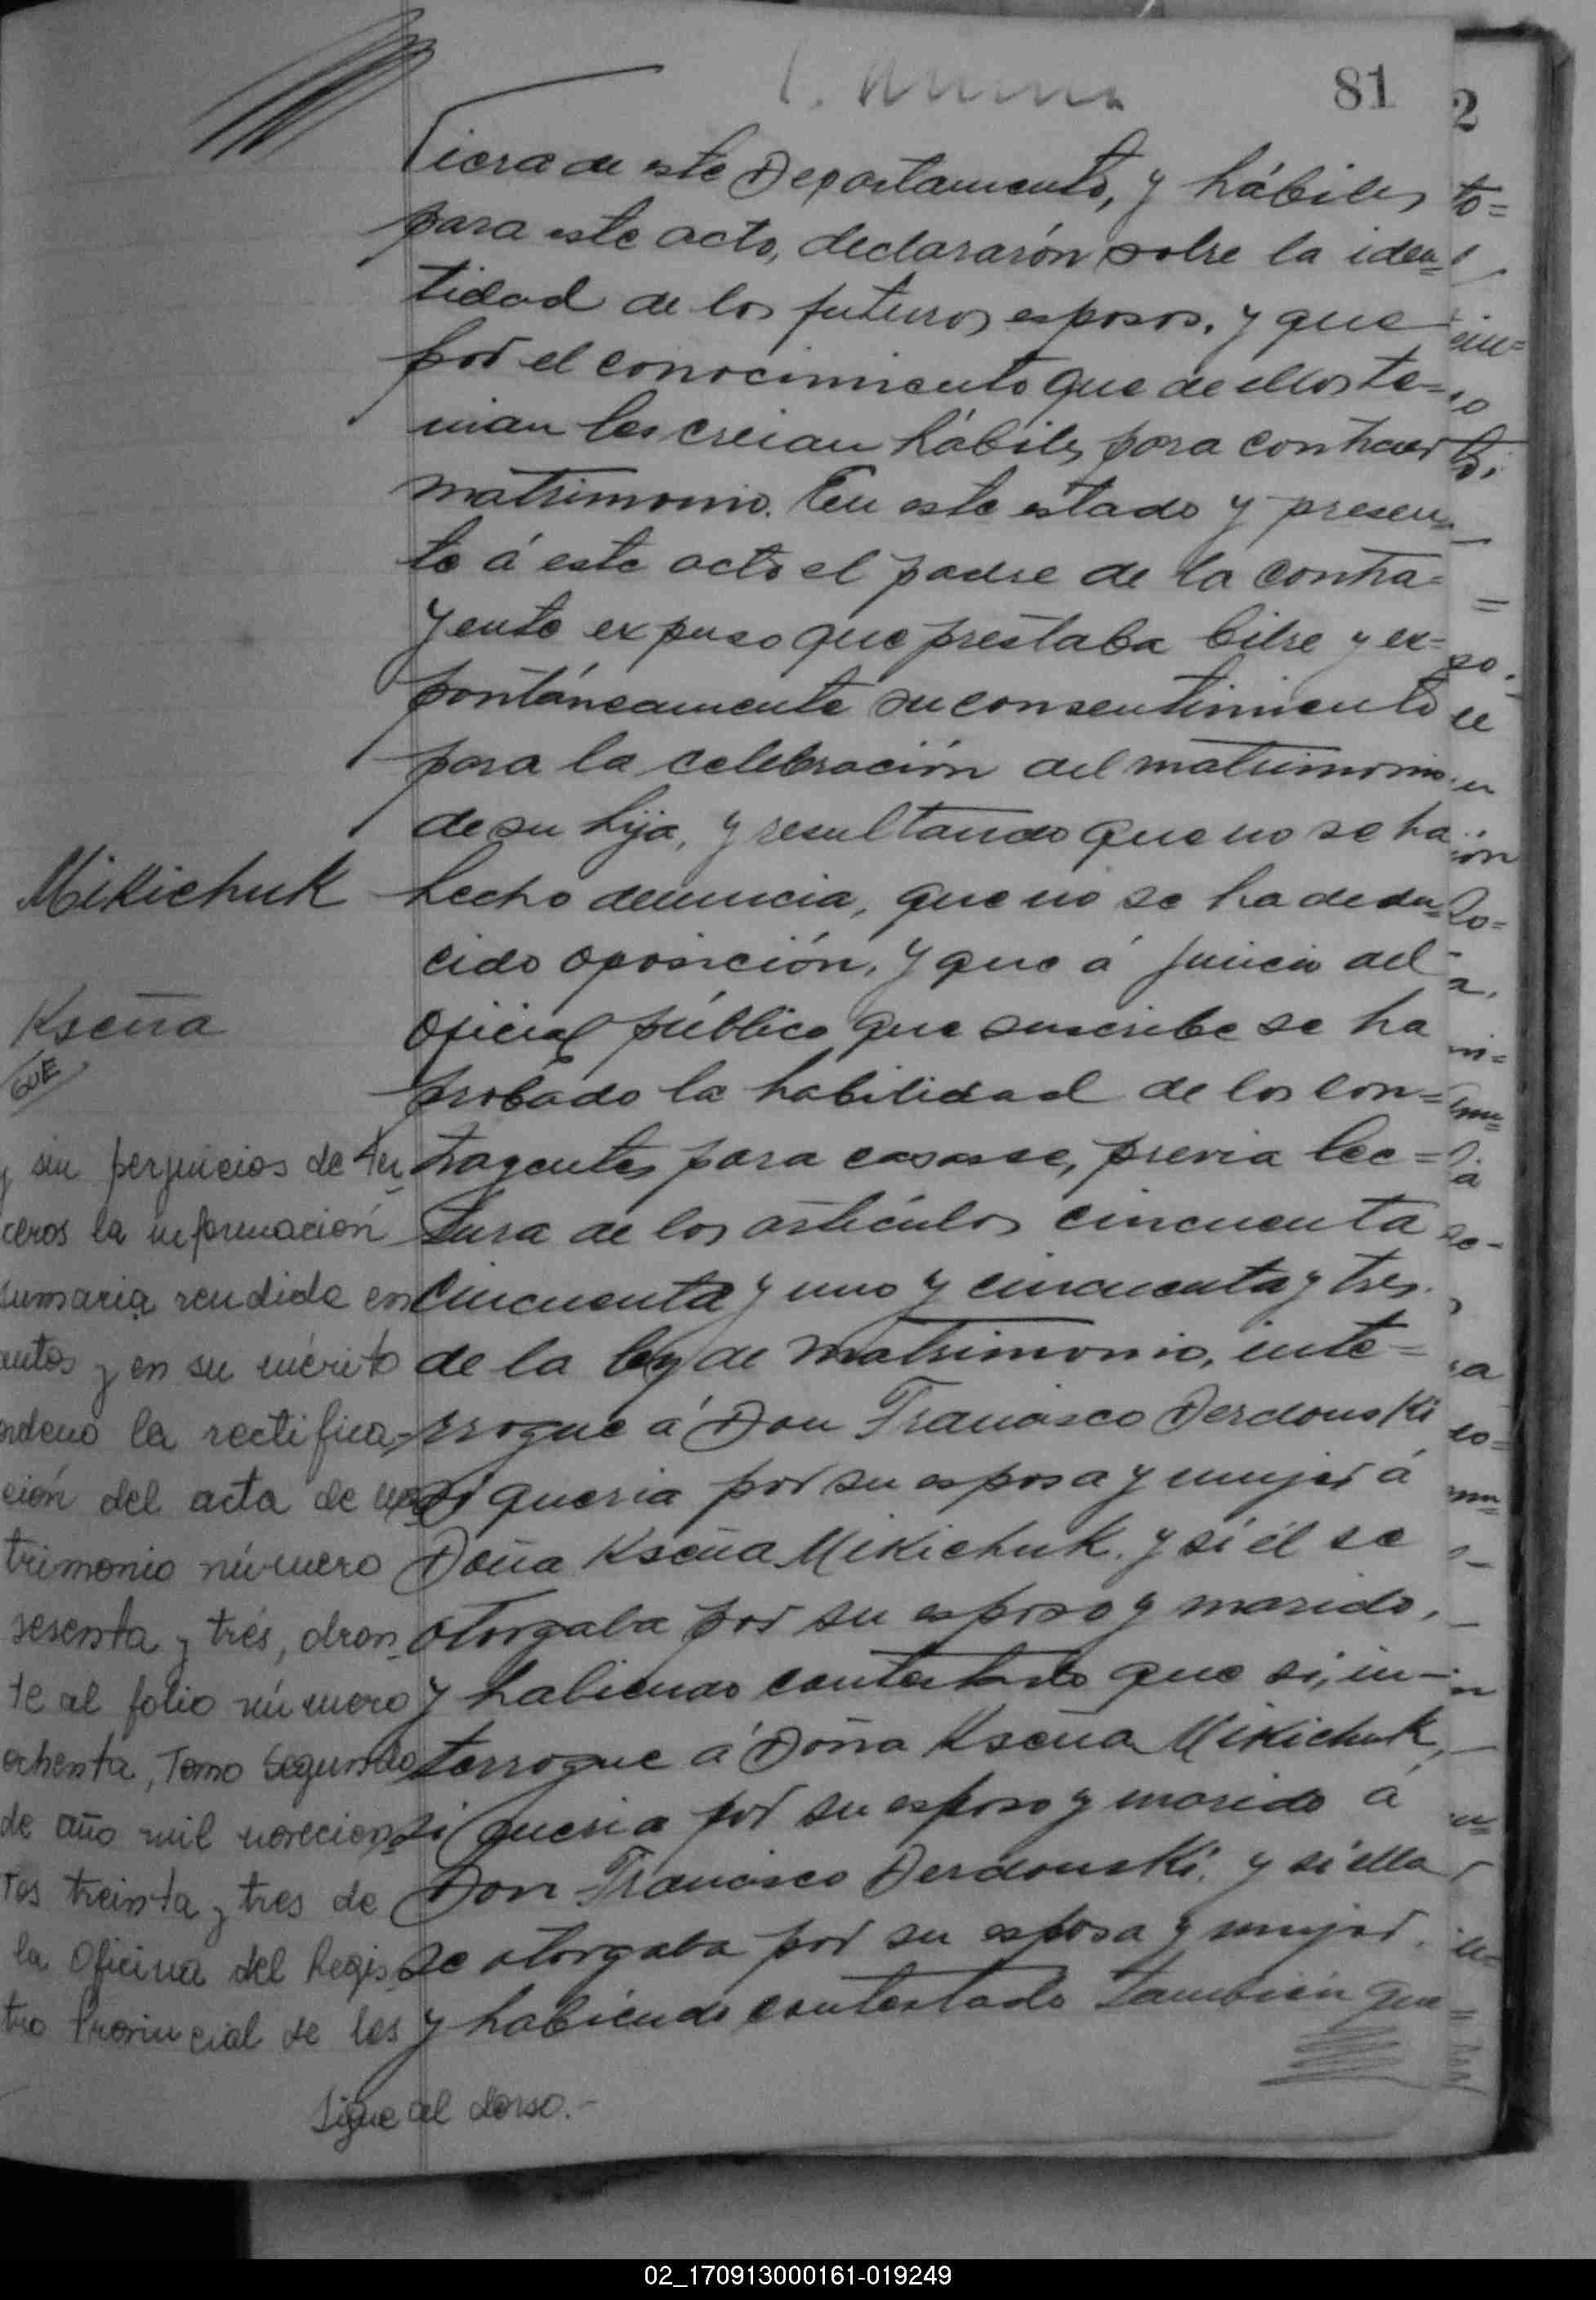 81
2
ciera de este Departamento, y hábiles
para este acto, declararón sobre la iden=
tidad de los futuros esposos, y que
por el conocimiento que de ellos te=
nian les creian hábiles para contraer
matrimonio. En este estado y presen=
te á este acto el padre de la contra=
yente expuso que prestaba libre y es=
pontáneamente su consentimiento
para la celebración del matrimonio
de su hija, y resultando que no se ha
hecho denuncia, que no se ha dedu=
cido oposición, y que á juicio del
Oficial público que suscribe se ha
probado la habilidad de los con=
trayentes para casarse, previa lec=
tura de los artículos cincuenta
cincuenta y uno y cincuenta y tres
de la ley de matrimonio, inte=
rrogue á Don Francisco Derdouski
si queria por su esposa y mujer á
Doña Kseña Mikichuk. y si él se
otorgaba por su esposo y marido,
y habiendo contestado que si, in=
terrogue á Doña Kseña Mikichuk,
si queria por su esposo y marido á
Don Francisco Derdouski, y si ella
se otorgaba por su esposa y mujer.
y habiendo contestado también que
Mikichuk
Kseña
QUE
y sin perjuicios de ter
ceros la información
sumaria rendida en
autos y en su mérito
ordenó la rectifica-
ción del acta de ma
trimonio número
sesenta y trés, obran
te al folio número
ochenta, Tomo Segundo
de año mil novecien
tos treinta y tres de
la Oficina del Regis
tro Provincial de las
Sigue al dorso.-
02_170913000161-019249